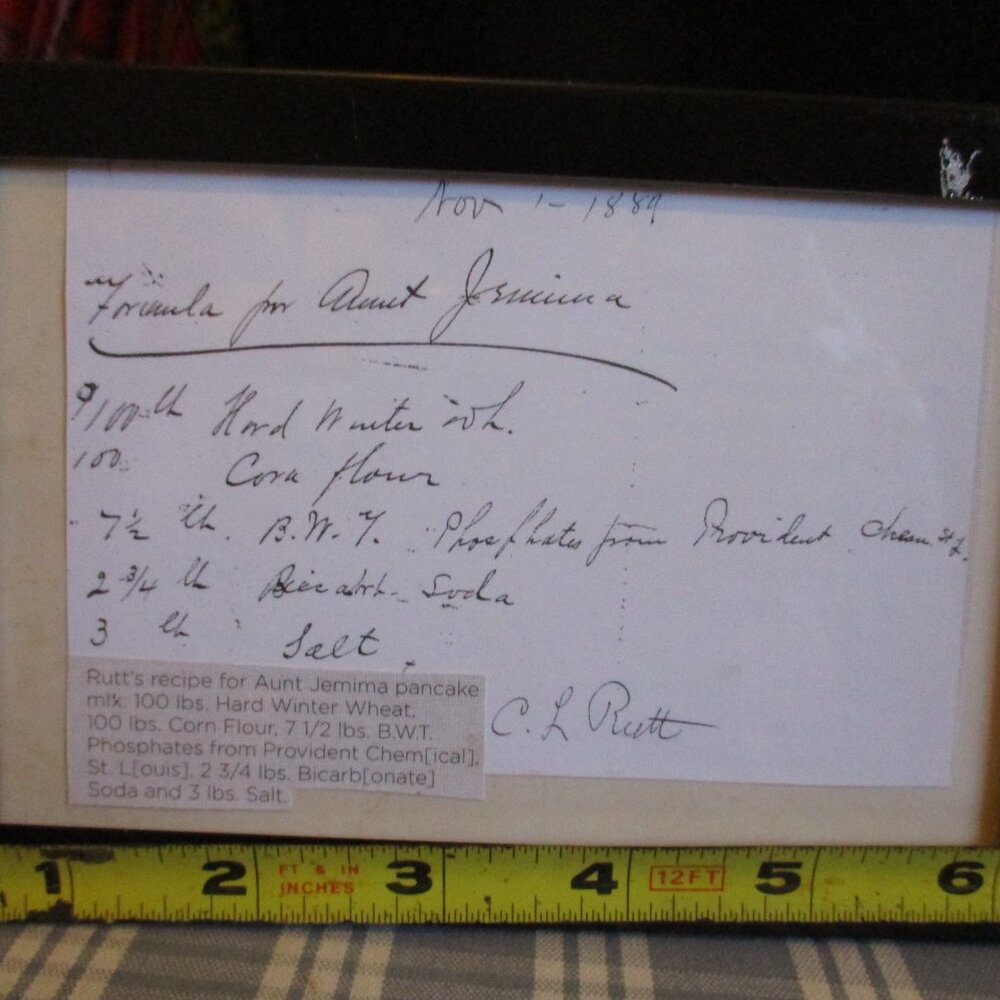 Nov 1 - 1889
Formula for Aunt Jemima
100 lb Hard Winter Wh.
100 Corn flour
7 1/2 lb. B.W.T. Phosphates from Provident Chem. St L.
2 3/4 lb Bicarb. Soda
3 lb Salt.
C. L Rutt
Rutt's recipe for Aunt Jemima pancake
mix: 100 lbs. Hard Winter Wheat,
100 lbs. Corn Flour, 7 1/2 lbs. B.W.T.
Phosphates from Provident Chem[ical],
St. L[ouis], 2 3/4 lbs. Bicarb[onate]
Soda and 3 lbs. Salt.
1 2 FT & IN 3 4 12FT 5 6
INCHES